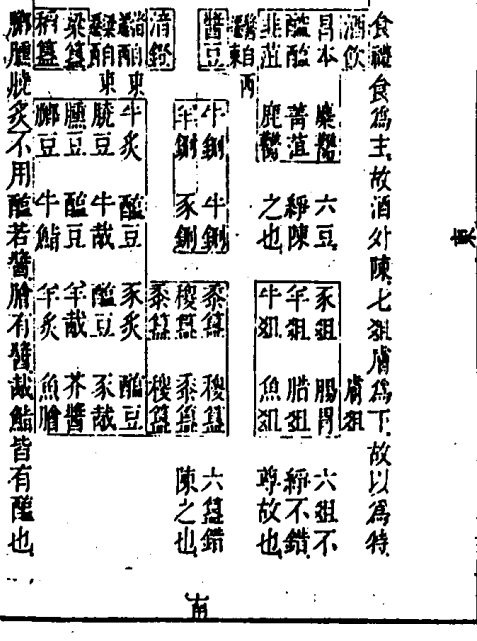 東
食禮食為主故酒外陳七俎膚為下故以為特
酒飲 膚俎
昌本 麋臡 六豆 豕俎 腸胃 六俎不
醓醢 菁菹 綪陳 羊俎 腊俎 綪不錯
韭菹 鹿臡 之也 牛俎 魚俎 尊故也
醬自西
醬豆 牛鉶 牛鉶 黍簋 稷簋 六簋錯
湆鐙 羊鉶 豕鉶 稷簋 黍簋 陳之也
黍簋 稷簋
湆自東
粱自東
牛炙 醢豆 豕炙 醢豆
膮豆 牛胾 醢豆 豕胾
粱簋 臐豆 醢豆 羊胾 芥醬
稻簋 膷豆 牛鮨 羊炙 魚膾
膷臐膮炙不用醢若醬膾有醬胾鮨皆有醢也
南